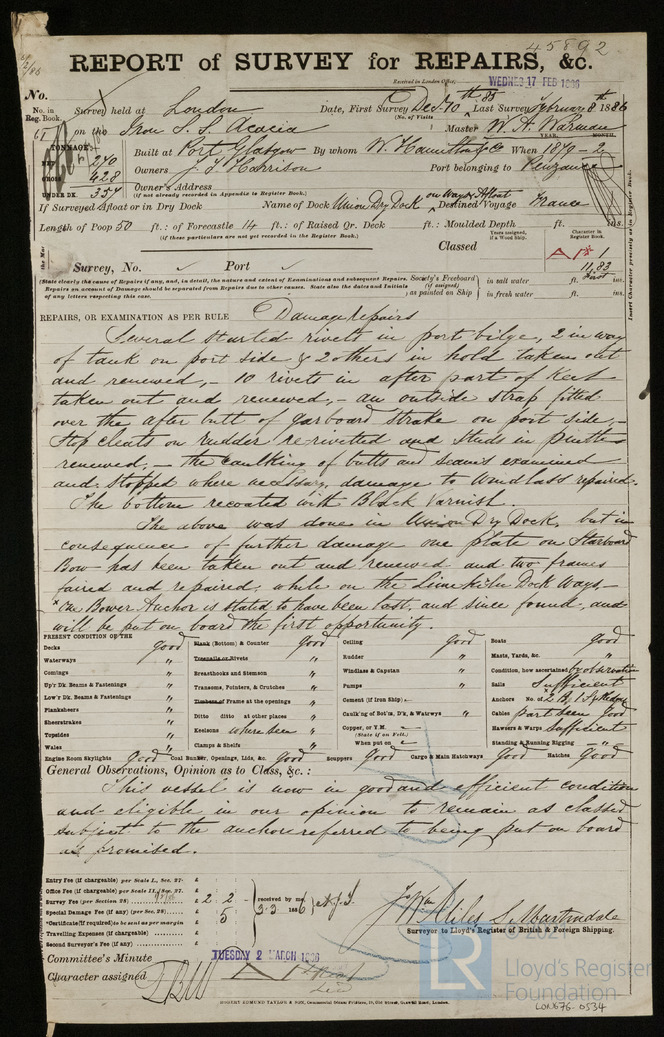 45892
REPORT of SURVEY for REPAIRS, &c.
Received in London Office, WEDNES 17 FEB 1886
No.
No. in Reg. Book.
Survey held at London Date, First Survey Dec. 10th 85 Last Survey February 8th 1886
(No. of Visits
on the Iron S. S. Acacia Master W. A. Warman
YEAR. MONTH.
TONNAGE:—
NET 270
GROSS 428
UNDER DK. 357
Built at Port Glasgow By whom W. Hamilton & Co When 1879 - 2
Owners J. T. Harrison Port belonging to Penzance
Owner's Address
(if not already recorded in Appendix to Register Book.)
If Surveyed Afloat or in Dry Dock Name of Dock Union Dry Dock on Ways & Afloat Destined Voyage France
Length of Poop 50 ft.: of Forecastle 14 ft.: of Raised Qr. Deck ft.: Moulded Depth ft. ins.
(if these particulars are not yet recorded in the Register Book.)
Years assigned, if a Wood Ship.
Character in Register Book
Classed A 1
11,83
Survey, No. Port
(State clearly the cause of Repairs if any, and, in detail, the nature and extent of Examinations and subsequent Repairs.
Repairs on account of Damage should be separated from Repairs due to other causes. State also the dates and Initials
of any letters respecting this case.
Society's Freeboard (if assigned) , as painted on Ship
in salt water ft. ins.
in fresh water ft. ins.
Insert Character precisely as in Register Book.
REPAIRS, OR EXAMINATION AS PER RULE Damage repairs
Several started rivets in port bilge, 2 in way
of tank on port side & 2 others in hold taken out
and renewed,- 10 rivets in after part of Keel
taken out and renewed,- an outside strap fitted
over the after butt of garboard strake on port side,-
Stop cleats on rudder re-rivetted and studs in
renewed,- the caulking of butts and seams examined
and stopped where necessary, damage to windlass repaired.
The bottom recoated with Black Varnish.
The above was done in Union Dry Dock, but in
consequence of further damage one plate on Starboard
Bow has been taken out and renewed and two frames
faired and repaired while on the Limekiln Dock Ways.-
x One Bower Anchor is stated to have been lost, and since found, and
will be put on board the first opportunity.
PRESENT CONDITION OF THE
Decks Good
Waterways "
Comings "
Up'r Dk. Beams & Fastenings "
Low'r Dk. Beams & Fastenings "
Planksheers "
Sheerstrakes "
Topsides "
Wales "
Engine Room Skylights Good
Plank (Bottom) & Counter Good
Treenails or Rivets "
Breasthooks and Stemson "
Transoms, Pointers, & Crutches "
Timbers or Frame at the openings "
Ditto ditto at other places "
Keelsons where seen "
Clamps & Shelfs "
Coal Bunker, Openings, Lids, &c. Good
Ceiling Good
Rudder "
Windlass & Capstan "
Pumps "
Cement (if Iron Ship) "
Caulk'ng of Bot'm, D'k, & Watrwys "
Copper, or Y.M.
(State if on Felt.)
When put on
Scuppers Good Cargo & Main Hatchways Good
Boats Good
Masts, Yards, &c. "
Condition, how ascertained by observation
Sails Sufficient
Anchors No. of x 2 B. 1 St. Kedge
Cables part seen Good
Hawsers & Warps Sufficient
Standing & Running Rigging "
Hatches Good
General Observations, Opinion as to Class, &c.:
This vessel is now in good and efficient condition
and eligible in our opinion to remain as classed
subject to the anchor referred to being put on board
as promised.
Entry Fee (if chargeable) per Scale I., Sec. 27. £
Office Fee (if chargeable) per Scale II., Sec. 27. £
Survey Fee (per Section 28) £ 2 : 2 -
Special Damage Fee (if any) (per Sec. 28) £ 5
*Certificate (if required) to be sent as per margin
Travelling Expenses (if chargeable) £
Second Surveyor's Fee (if any) £
received by me, 3.3 1886
Miles S. Martindale
Surveyor to Lloyd's Register of British & Foreign Shipping.
Committee's Minute TUESDAY 2 MARCH 1886
Character assigned
ROBERT EDMUND TAYLOR & SON, Commercial Steam Printers, 19, Old Street, Goswell Road, London.
LR
© 2021
Lloyd's Register
Foundation
LON676-0534